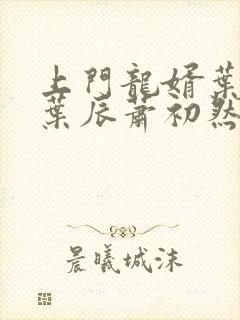 上門龍婿葉
葉辰蕭初然
晨曦城沫